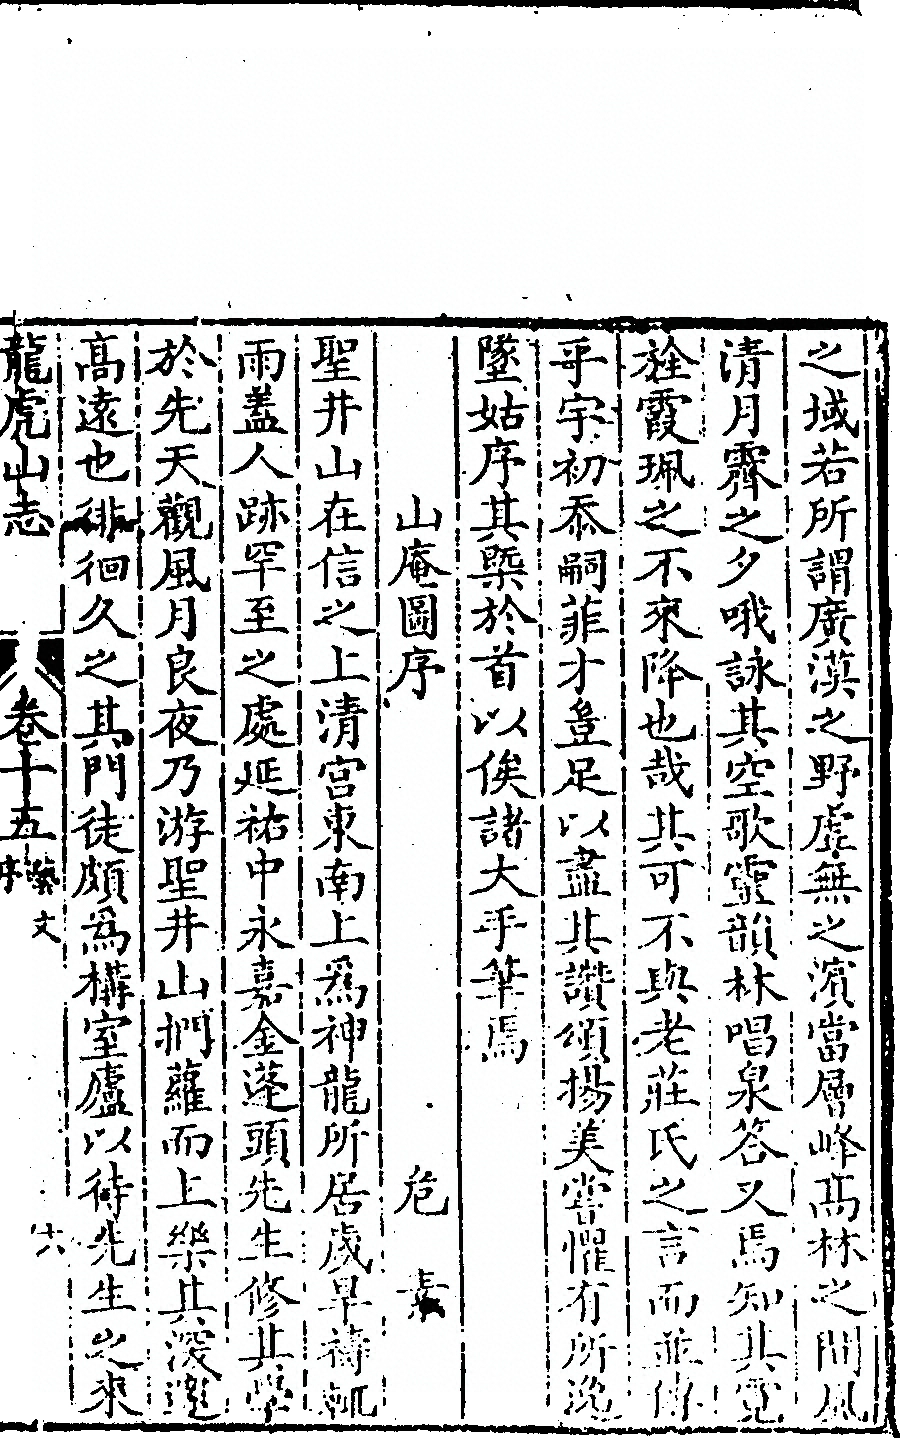 之域若所謂廣漠之野虛無之濱當層峰髙林之間風
清月霽之夕哦詠其空歌靈韻林唱泉答又焉知其霓
旌霞珮之不來降也哉其可不與老莊氏之言而並傳
乎宇初忝嗣菲才豈足以盡其讚頌揚美嘗懼有所逸
墜姑序其槩於首以俟諸大手筆焉
山庵圖序 危素
聖井山在信之上清宫東南上爲神龍所居歲旱禱輒
雨蓋人跡罕至之處延祐中永嘉金蓬頭先生修其學
於先天觀風月良夜乃游聖井山捫蘿而上樂其深邃
髙遠也徘徊久之其門徒頗爲構室廬以待先生之來
龍虎山志 卷十五 藝文 序 六